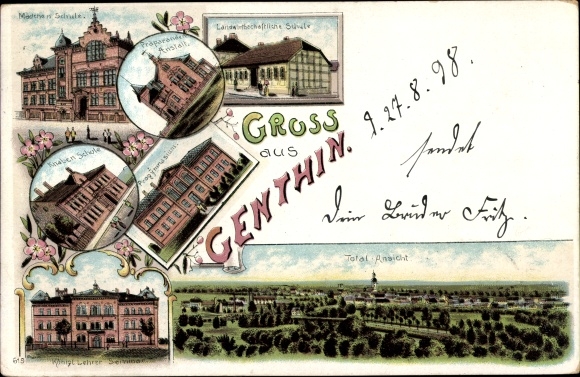 Mädchen Schule.
Präparanden
Anstalt.
Landwirthschaftliche Schule
GRUSS
aus
GENTHIN.
27.8.98.
sendet
Dein Bruder Fritz.
Knaben Schule
Progymnasium.
Total Ansicht
Königl. Lehrer Seminar